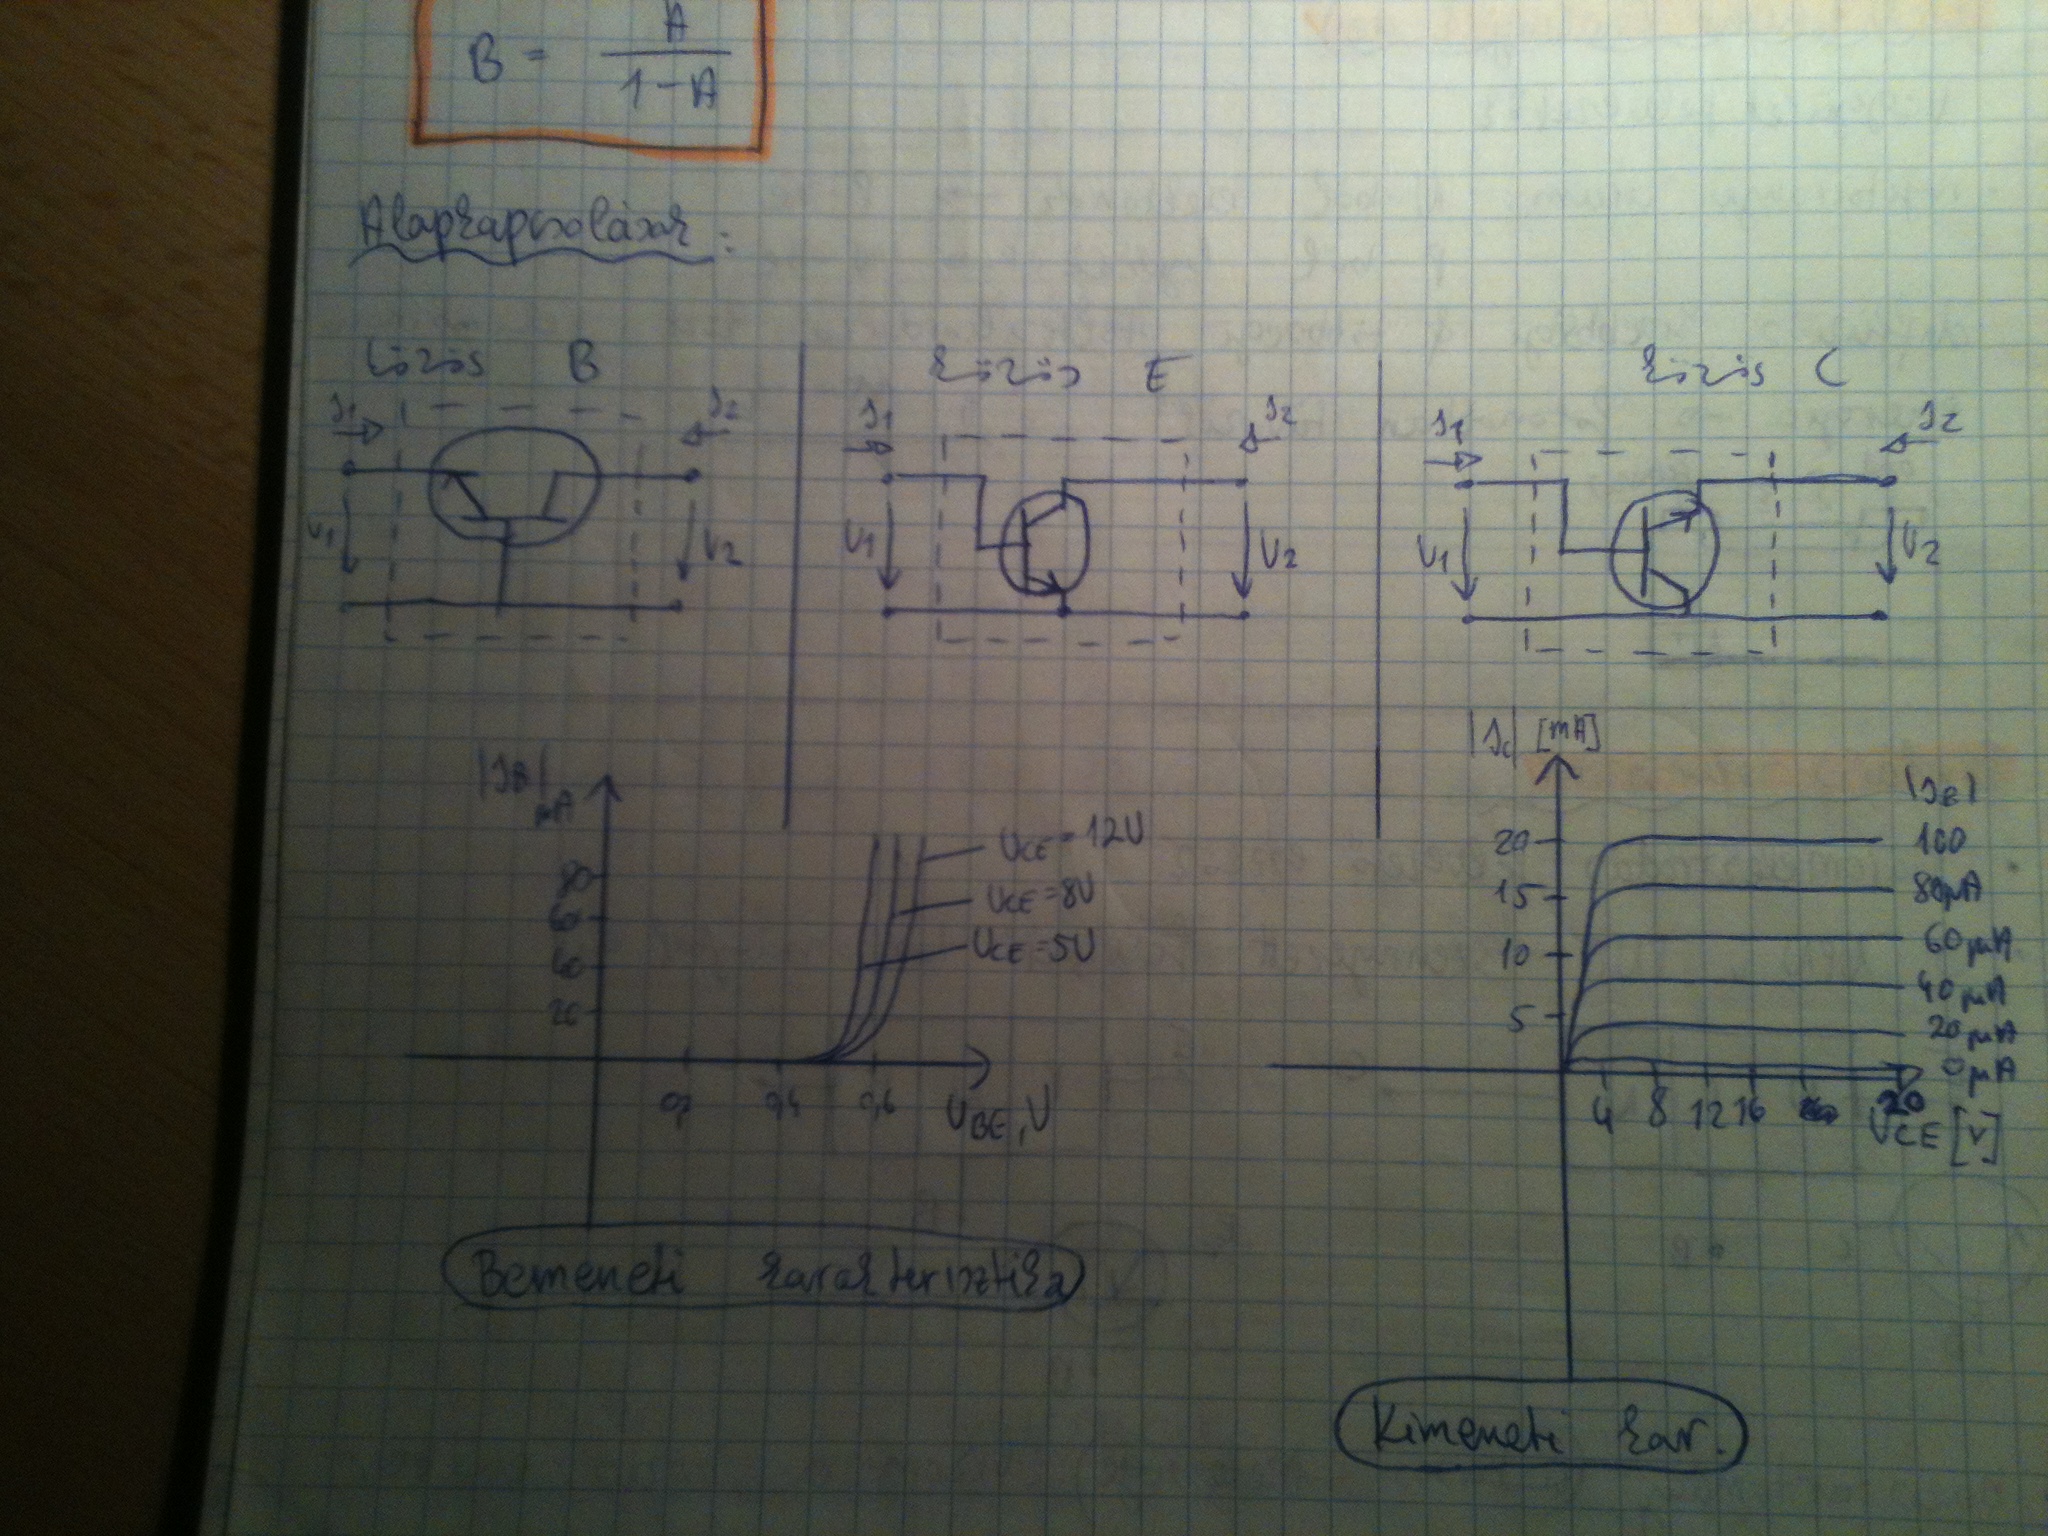 B = A / 1-A
Alapkapcsolások :
közös B
közös E
közös C
I1
I2
U1
U2
I1
I2
U1
U2
I1
I2
U1
U2
|IB| μA
80
60
40
20
0,2
0,4
0,6
UBE, V
UCE = 12V
UCE = 8V
UCE = 5V
Bemeneti karakterisztika
|IC| [mA]
20
15
10
5
4
8
12
16
20
UCE [V]
|IB|
100
80μA
60μA
40μA
20μA
0μA
Kimeneti kar.